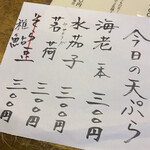 今日の天ぷら
海老 一本 三〇〇円
水茄子 三〇〇円
茗荷 三〇〇円
稚鮎 三〇〇円